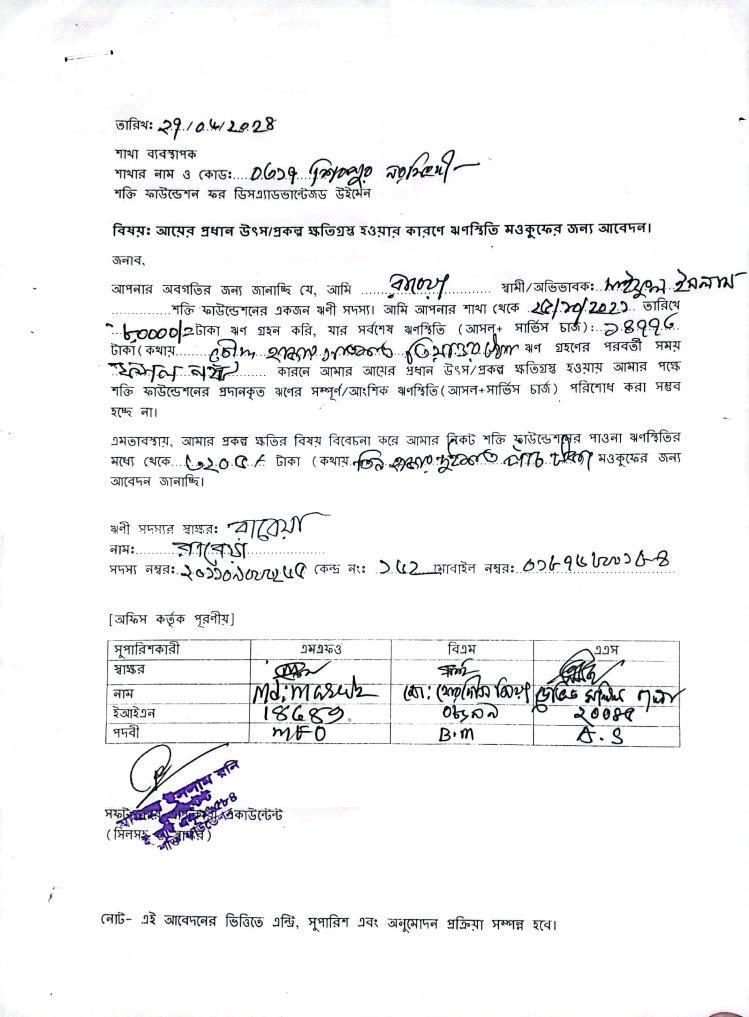 তারিখঃ ২৭/০৫/২০২৪
শাখা ব্যবস্থাপক
শাখার নাম ও কোডঃ.... ০৩১৭ শিবপুর নরসিংদী
শক্তি ফাউন্ডেশন ফর ডিসএ্যাডভান্টেজড উইমেন
বিষয়ঃ আয়ের প্রধান উৎস/প্রকল্প ক্ষতিগ্রস্থ হওয়ার কারণে ঋণস্থিতি মওকুফের জন্য আবেদন।
জনাব,
আপনার অবগতির জন্য জানাচ্ছি যে, আমি ...... রাবেয়া ...... স্বামী/অভিভাবকঃ সাইফুল ইসলাম
..............শক্তি ফাউন্ডেশনের একজন ঋণী সদস্য। আমি আপনার শাখা থেকে ২৫/১০/২০২১ তারিখে
৮০০০০/= টাকা ঋণ গ্রহন করি, যার সর্বশেষ ঋণস্থিতি (আসল+ সার্ভিস চার্জ)ঃ ১৪৭৭৬
টাকা(কথায়...... চৌদ্দ হাজার সাতশত ছিয়াত্তর টাকা ঋণ গ্রহণের পরবর্তী সময়
ফসল নষ্ট কারনে আমার আয়ের প্রধান উৎস/প্রকল্প ক্ষতিগ্রস্থ হওয়ায় আমার পক্ষে
শক্তি ফাউন্ডেশনের প্রদানকৃত ঋণের সম্পূর্ণ/আংশিক ঋণস্থিতি(আসল+সার্ভিস চার্জ) পরিশোধ করা সম্ভব
হচ্ছে না।
এমতাবস্থায়, আমার প্রকল্প ক্ষতির বিষয় বিবেচনা করে আমার নিকট শক্তি ফাউন্ডেশনের পাওনা ঋণস্থিতির
মধ্যে থেকে...৩২০৫/- টাকা (কথায় তিন হাজার দুইশত পাঁচ টাকা) মওকুফের জন্য
আবেদন জানাচ্ছি।
ঋণী সদস্যর স্বাক্ষরঃ রাবেয়া
নামঃ....... রাবেয়া
সদস্য নম্বরঃ কেন্দ্র নংঃ ১৫২ মোবাইল নম্বরঃ
[অফিস কর্তৃক পূরণীয়]
সুপারিশকারী এমএফও বিএম এএস
স্বাক্ষর
নাম Md: Masud মো:
ইআইএন 18689 ২০০৪৫
পদবী MFO B.M A.S
একাউন্টেন্ট
নোট- এই আবেদনের ভিত্তিতে এন্ট্রি, সুপারিশ এবং অনুমোদন প্রক্রিয়া সম্পন্ন হবে।